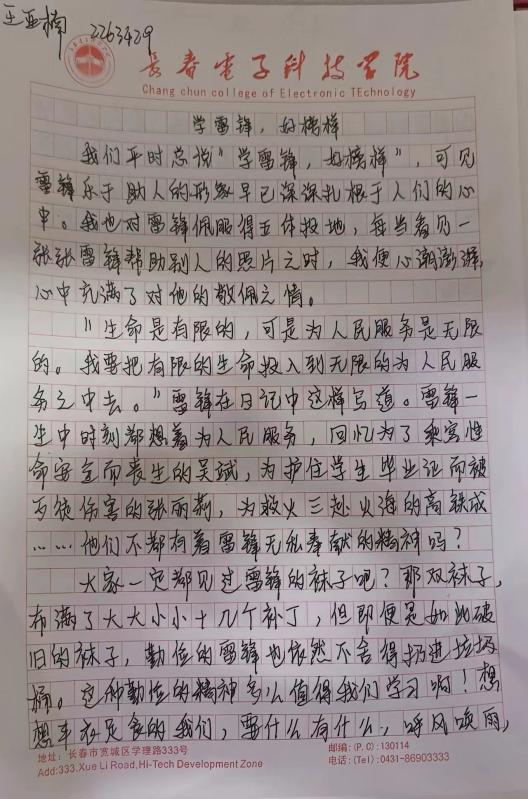 王亚楠 2263429
长春电子科技学院
Chang chun college of Electronic TEchnology
学雷锋，好榜样
我们平时总说“学雷锋，好榜样”，可见
雷锋乐于助人的形象早已深深扎根于人们的心
中。我也对雷锋佩服得五体投地，每当看见一
张张雷锋帮助别人的照片之时，我便心潮澎湃，
心中充满了对他的敬佩之情。
“生命是有限的，可是为人民服务是无限
的。我要把有限的生命投入到无限的为人民服
务之中去。”雷锋在日记中这样写道。雷锋一
生中时刻都想着为人民服务，回忆为了乘客性
命安全而丧生的吴斌，为护住学生毕业证而被
歹徒伤害的张丽莉，为救火三赴火海的高铁成
……他们不都有着雷锋无私奉献的精神吗？
大家一定都见过雷锋的袜子吧？那双袜子，
布满了大大小小十几个补丁，但即便是如此破
旧的袜子，勤俭的雷锋也依然不舍得扔进垃圾
桶。这种勤俭的精神多么值得我们学习啊！想
想丰衣足食的我们，要什么有什么，呼风唤雨，
地址：长春市宽城区学理路333号
Add:333.Xue Li Road,Hi-Tech Development Zone
邮编：(P.C):130114
电话：(Tel):0431-86903333